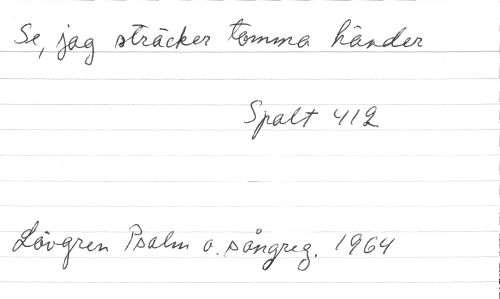 Se, jag sträcker tomma händer
Spalt 412
Lövgren Psalm o. sångreg. 1964